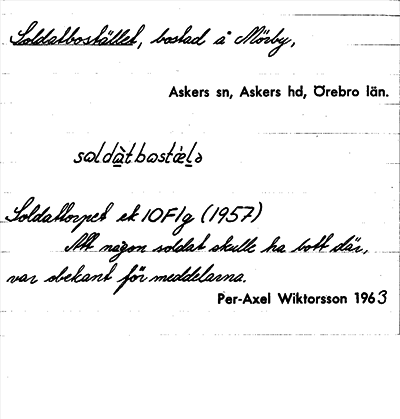 Soldatbostället, bostad å Mörby,
Askers sn, Askers hd, Örebro län.
soldà̱tbostæ̱lə
Soldattorpet ek 10F1g (1957)
Att någon soldat skulle ha bott där,
var obekant för meddelarna.
Per-Axel Wiktorsson 1963